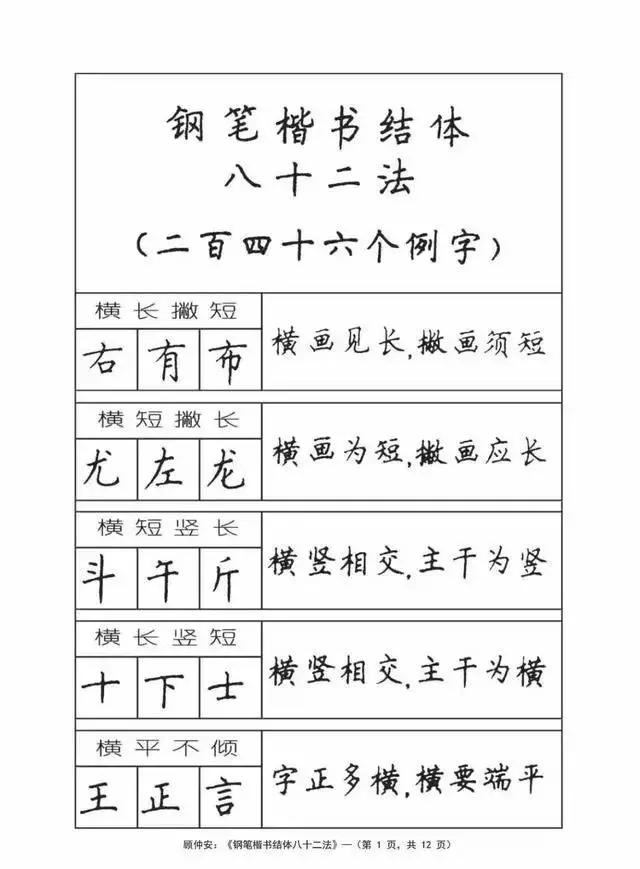 钢笔楷书结体
八十二法
（二百四十六个例字）
横长撇短
右有布
横画见长,撇画须短
横短撇长
尤左龙
横画为短,撇画应长
横短竖长
斗午斤
横竖相交,主干为竖
横长竖短
十下士
横竖相交,主干为横
横平不倾
王正言
字正多横,横要端平
顾仲安：《钢笔楷书结体八十二法》—（第 1 页，共 12 页）